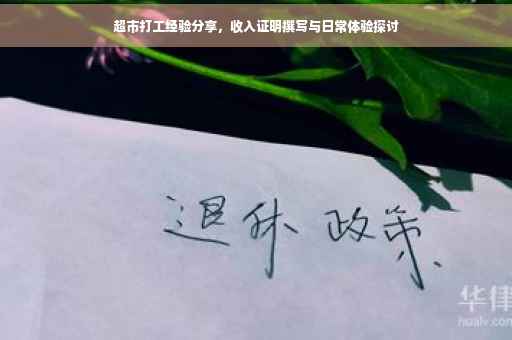 超市打工经验分享，收入证明撰写与日常体验探讨
退休 政策
华律
hualv.com